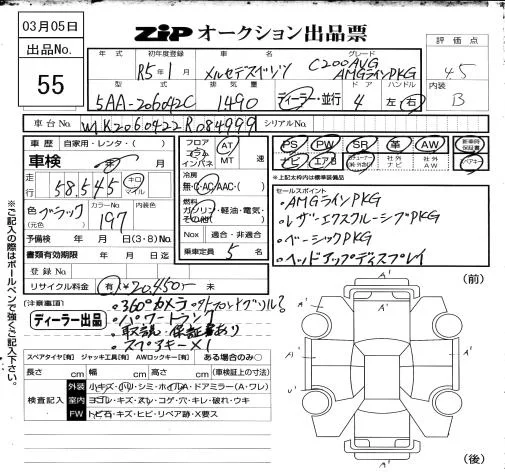 03月05日
ZIP オークション出品票
出品No.
55
年式
初年度登録
車名
グレード
評価点
R5年1月
メルセデスベンツ
C200AVG
AMGラインPKG
4.5
型式
排気量
ドア
ハンドル
内装
5AA-206042C
1490
ディーラー・並行
4
左・右
B
車台No.
W1K2060422R084999
シリアルNo.
車歴
自家用・レンタ・( )
フロア
コラム
インパネ
AT
MT
速
PS
PW
SR
革
AW
新車時保証書
車検
年
月
ナビ
エアB
社外ナビ
社外AW
スペアキー
走行
58,545
キロ
マイル
冷房
無・C・AC・AAC・( )
※上記太枠内は標準装備品
色
(元色)
ブラック
カラーNo.
197
内装色
燃料
ガソリン・軽油・電気・
その他( )
セールスポイント
・AMGラインPKG
・レザーエクスクルーシブPKG
・ベーシックPKG
・ヘッドアップディスプレイ
予備検
年 月 日(3・8)No.
Nox
適合・非適合
書類有効期限
年 月 日迄
乗車定員
5名
登録No.
リサイクル料金
有
¥20,450-
未
(前)
(注意事項)
ディーラー出品
・360°カメラ
・パワートランク
・取説・保証書あり
・スペアキー×1
スペアタイヤ[有] ジャッキ工具[有] AWロックキー[有] ある場合のみ○
長さ cm 幅 cm 高さ cm (車検証上の寸法)
検査記入
外装
小キズ・小凹・シミ・ホイルA・ドアミラー(A・ワレ)
室内
ヨゴレ・キズ・スレ・コゲ・穴・キレ・破れ・ウキ
FW
トビ石・キズ・ヒビ・リペア跡・X要ス
※ご記入の際はボールペンで強くご記入下さい。
A'
A'
A'
A'
(後)